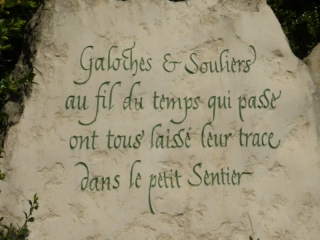 Galoches & Souliers
au fil du temps qui passe
ont tous laissé leur trace
dans le petit Sentier